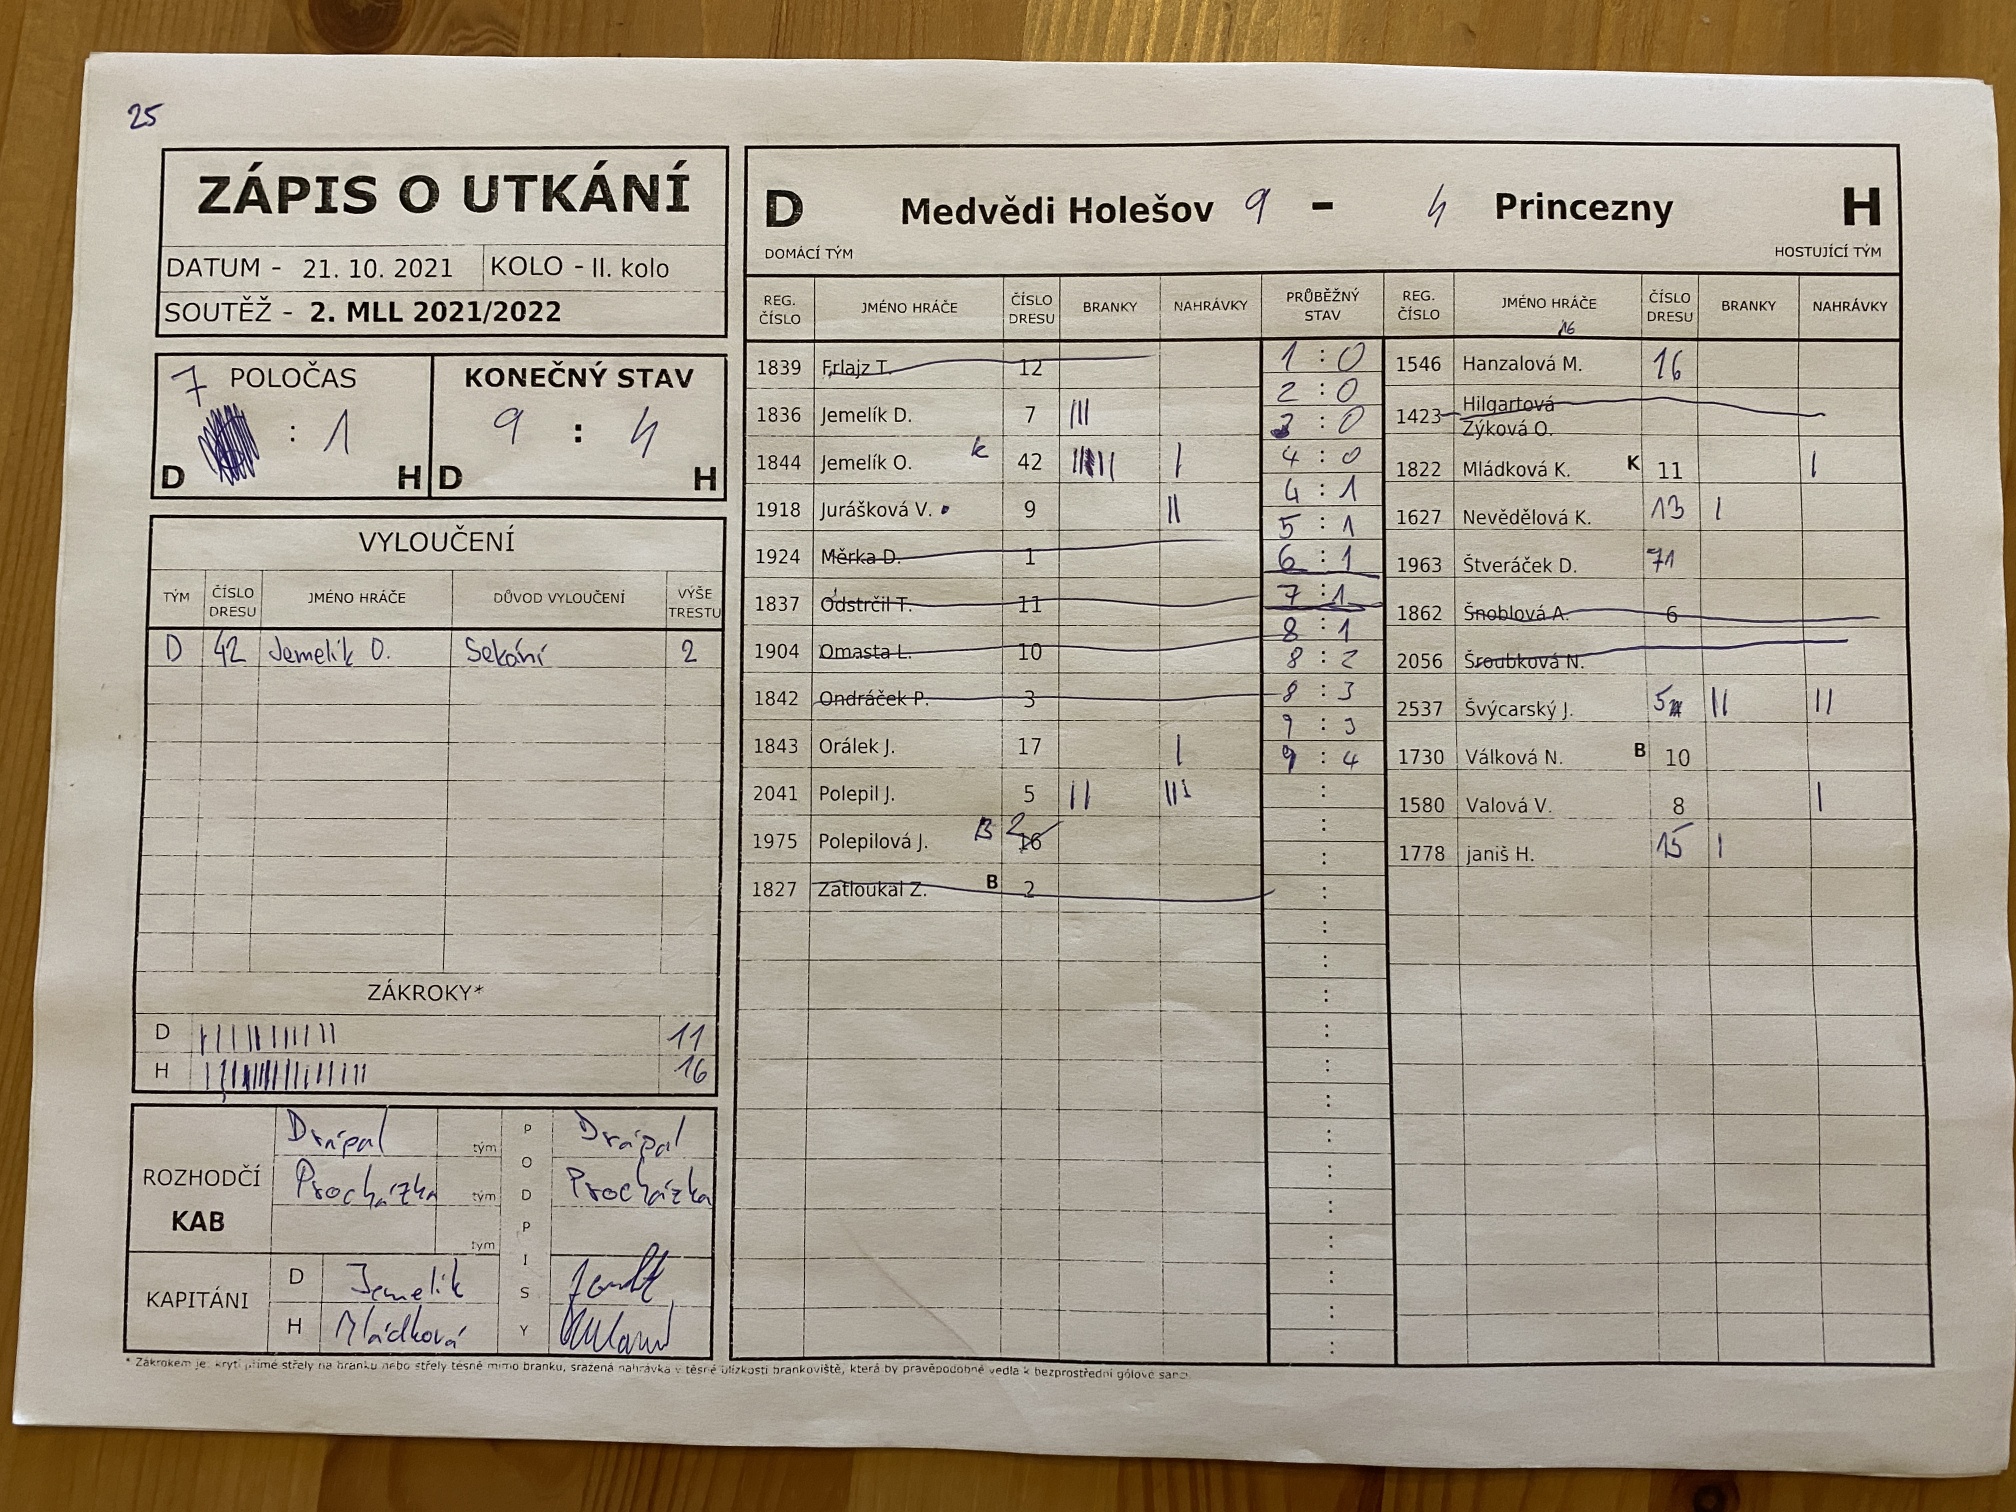 25
ZÁPIS O UTKÁNÍ
DATUM - 21. 10. 2021 KOLO - II. kolo
SOUTĚŽ - 2. MLL 2021/2022
7 POLOČAS
: 1
D H
KONEČNÝ STAV
9 : 4
D H
VYLOUČENÍ
TÝM ČÍSLO DRESU JMÉNO HRÁČE DŮVOD VYLOUČENÍ VÝŠE TRESTU
D 42 Jemelík O. Sekání 2
ZÁKROKY*
D 11
H 16
ROZHODČÍ
KAB
Drápal tým
Procházka tým
tým
PODPISY
Drápal
Procházka
KAPITÁNI
D Jemelík
H Mládková
D Medvědi Holešov 9 - 4 Princezny H
DOMÁCÍ TÝM HOSTUJÍCÍ TÝM
REG. ČÍSLO JMÉNO HRÁČE ČÍSLO DRESU BRANKY NAHRÁVKY
1839 Frlajz T. 12
1836 Jemelík D. 7 |||
1844 Jemelík O. k 42 |
1918 Jurášková V. 9 ||
1924 Měrka D. 1
1837 Odstrčil T. 11
1904 Omasta L. 10
1842 Ondráček P. 3
1843 Orálek J. 17 |
2041 Polepil J. 5 || |||
1975 Polepilová J. B 2 16
1827 Zatloukal Z. B 2
PRŮBĚŽNÝ STAV
1 : 0
2 : 0
3 : 0
4 : 0
4 : 1
5 : 1
6 : 1
7 : 1
8 : 1
8 : 2
8 : 3
9 : 3
9 : 4
REG. ČÍSLO JMÉNO HRÁČE ČÍSLO DRESU BRANKY NAHRÁVKY
16
1546 Hanzalová M. 16
1423 Hilgartová Zýková O.
1822 Mládková K. K 11 |
1627 Nevědělová K. 13 |
1963 Štveráček D. 71
1862 Šnoblová A. 6
2056 Šroubková N.
2537 Švýcarský J. 5 || ||
1730 Válková N. B 10
1580 Valová V. 8 |
1778 janiš H. 15 |
* Zákrokem je: krytí přímé střely na branku nebo střely těsně mimo branku, sražená nahrávka v těsné blízkosti brankoviště, která by pravěpodobně vedla k bezprostřední gólové